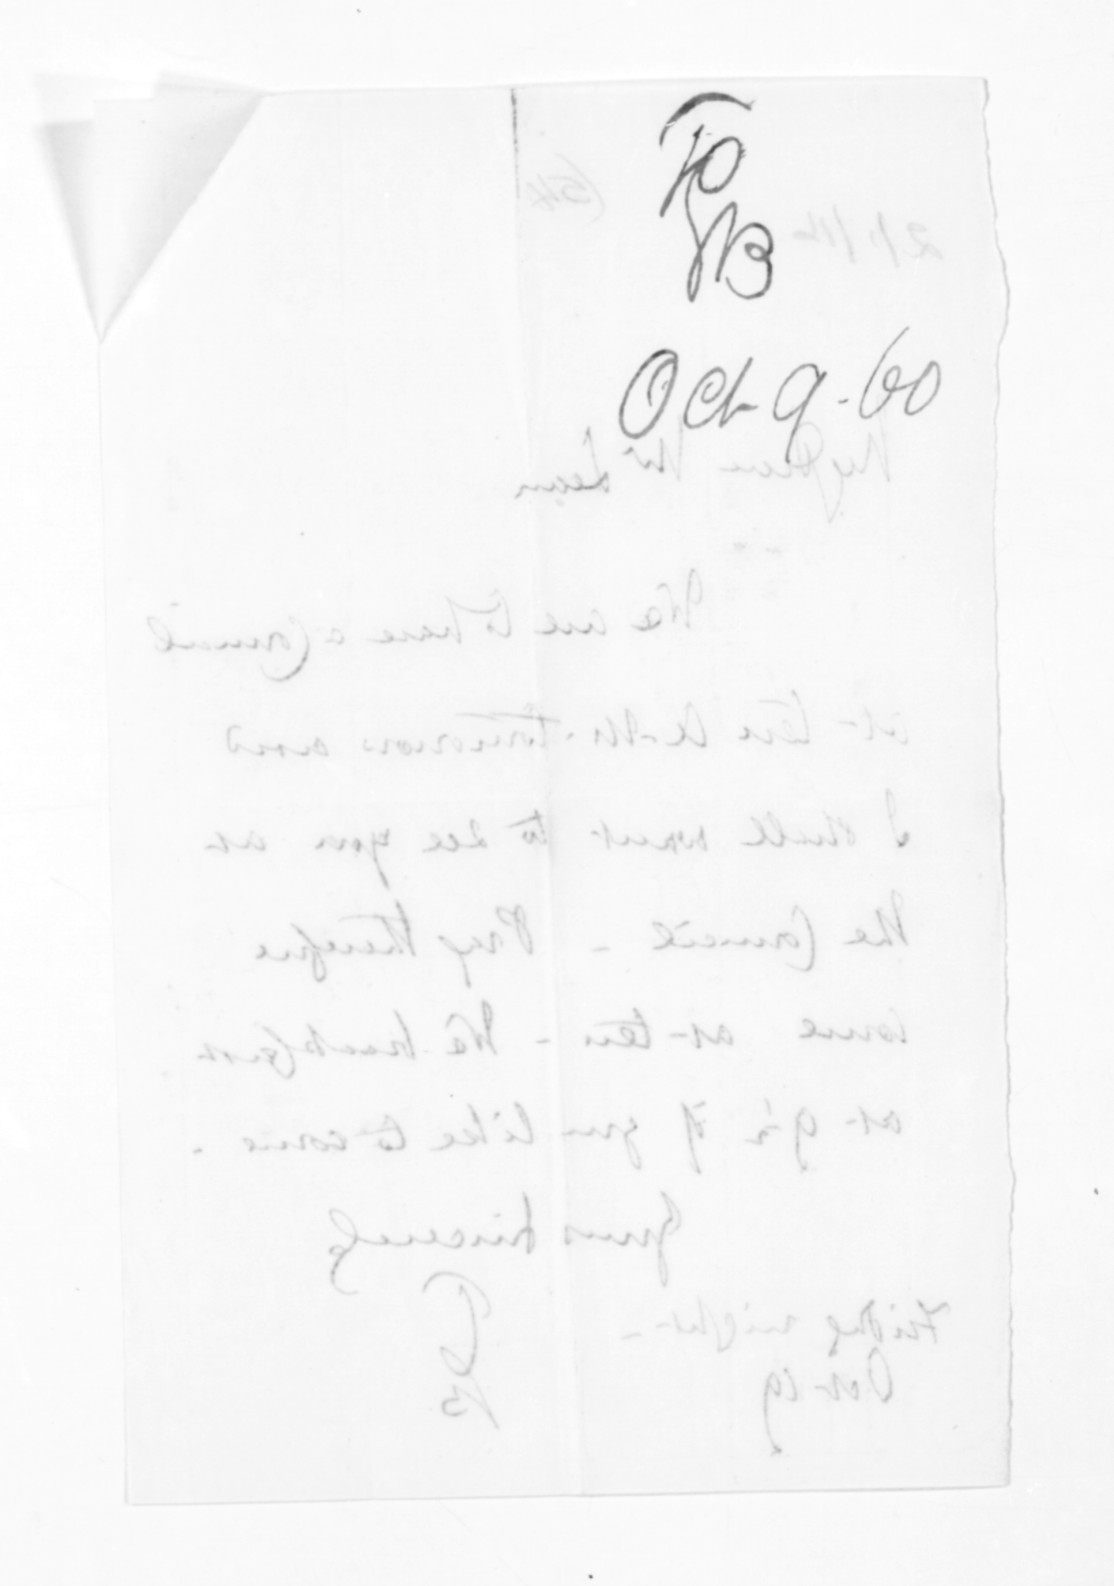 TG
B
Oct 9 - 60
(54
My dear Mr Lean
We are to have a Council
at ten A.M. tomorrow and
I shall want to see you at
the Council - Pray therefore
come at ten - We breakfast
at 9½ if you like to come -
Yours sincerely
Friday night -
Oct 19